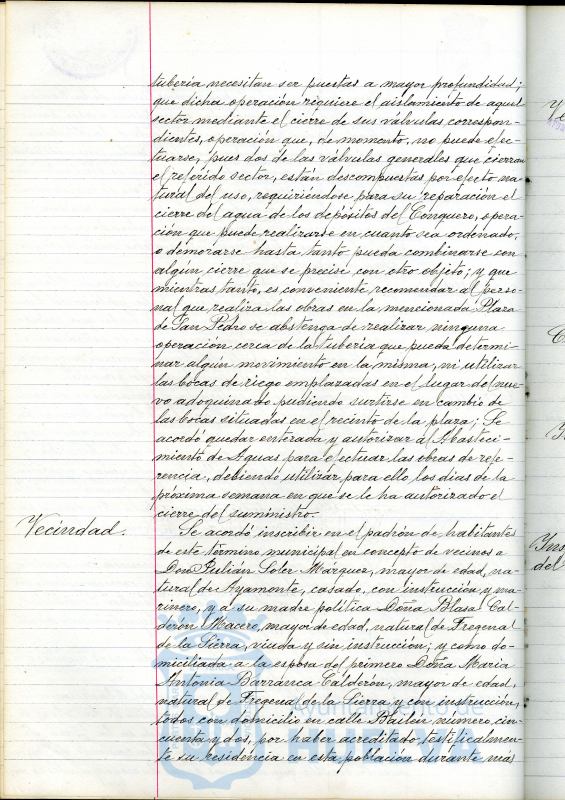 tubería necesitan ser puestas a mayor profundidad;
que dicha operación requiere el aislamiento de aquel
sector mediante el cierre de sus válvulas correspon-
dientes, operación que, de momento, no puede efec-
tuarse, pues dos de las válvulas generales que cierran
el referido sector, están descompuestas por efecto na-
tural del uso, requiriéndose para su reparación el
cierre del agua de los depósitos del Conquero, opera-
ción que puede realizarse en cuanto sea ordenado,
o demorarse hasta tanto pueda combinarse con
algún cierre que se precise con otro objeto; y que
mientras tanto, es conveniente recomendar al perso-
nal que realiza las obras en la mencionada Plaza
de San Pedro se abstenga de realizar ninguna
operación cerca de la tubería que pueda determi-
nar algún movimiento en la misma, ni utilizar
las bocas de riego emplazadas en el lugar del nue-
vo adoquinado pudiendo surtirse en cambio de
las bocas situadas en el recinto de la plaza; Se
acordó quedar enterada y autorizar al Abasteci-
miento de Aguas para efectuar las obras de refe-
rencia, debiendo utilizar para ello los días de la
próxima semana en que se le ha autorizado el
cierre del suministro.
Vecindad.
Se acordó inscribir en el padrón de habitantes
de este término municipal en concepto de vecinos a
Don Julián Soler Márquez, mayor de edad, na-
tural de Ayamonte, casado, con instrucción y ma-
rinero, y a su madre política Doña Blasa Cal-
derón Macero, mayor de edad, natural de Fregenal
de la Sierra, viuda y sin instrucción; y como do-
miciliada a la esposa del primero Doña María
Antonia Barranca Calderón, mayor de edad,
natural de Fregenal de la Sierra y con instrucción,
todos con domicilio en calle Bailén número cin-
cuenta y dos, por haber acreditado testificalmen-
te su residencia en esta población durante más
Ayuntamiento de
HUELVA